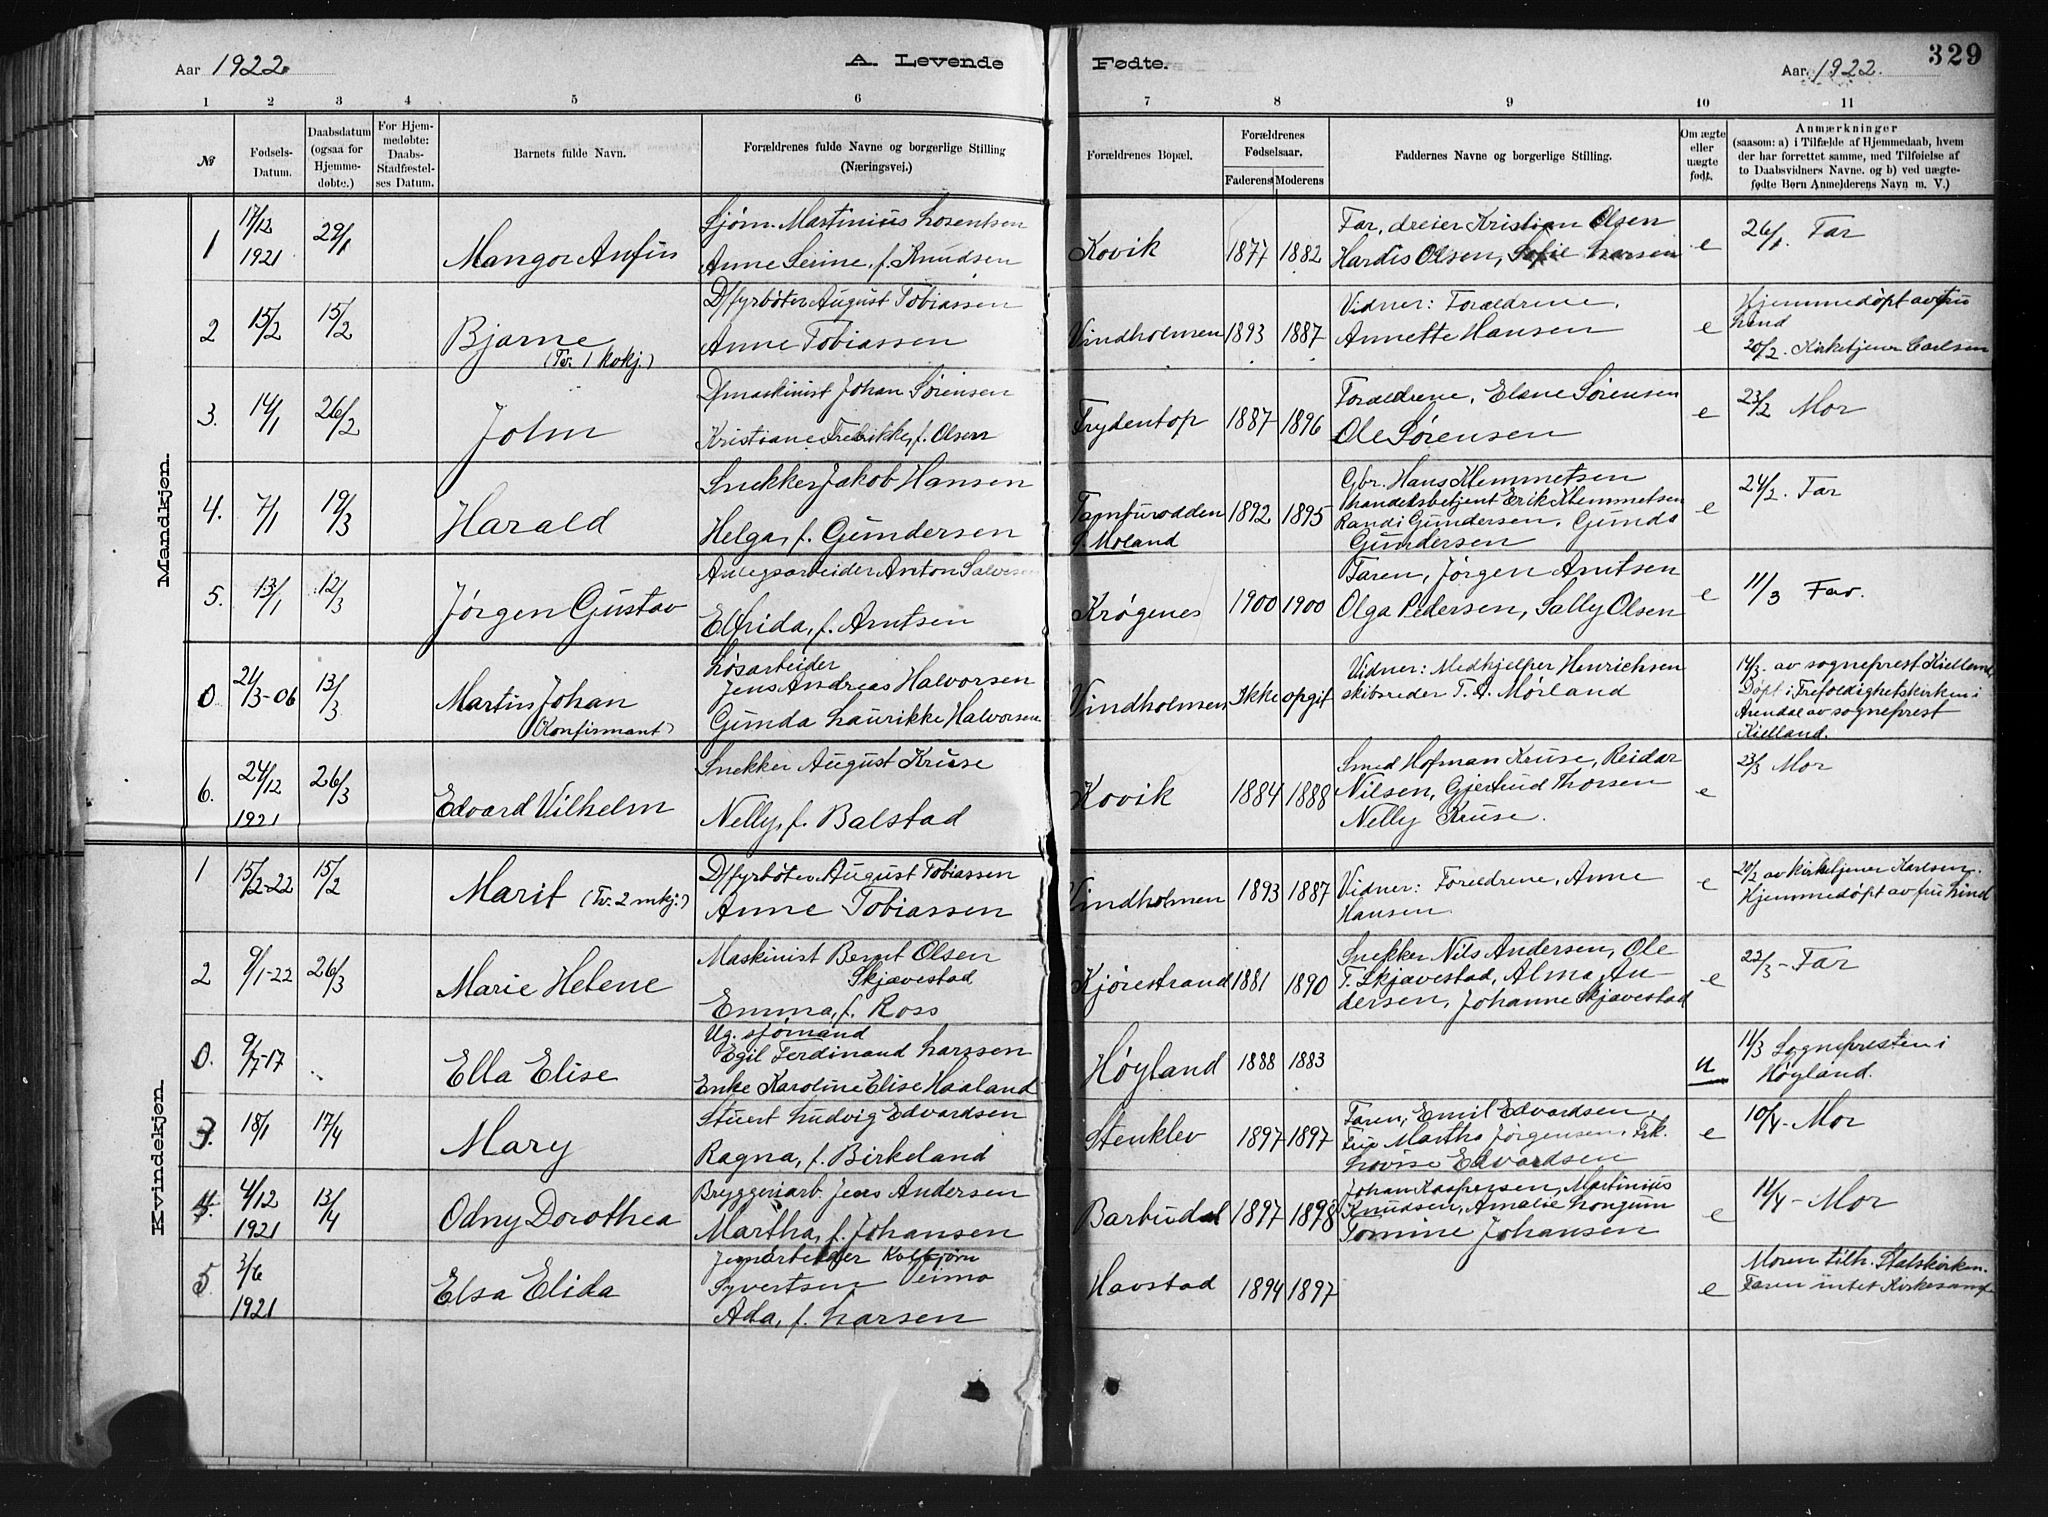 329
Aar 1922
A. Levende
Fødte.
Aar 1922.
1 2 3 4 5 6 7 8 9 10 11
№
Fødsels-
Datum.
Daabsdatum
(ogsaa for
Hjemme-
døbte.)
For Hjem-
medøbte:
Daabs-
Stadfæstel-
ses Datum.
Barnets fulde Navn.
Forældrenes fulde Navne og borgerlige Stilling
(Næringsvei.)
Forældrenes Bopæl.
Forældrenes
Fødselsaar.
Faderens Moderens
Faddernes Navne og borgerlige Stilling.
Om ægte
eller
uægte
født.
Anmærkninger
(saasom: a) i Tilfælde af Hjemmedaab, hvem
der har forrettet samme, med Tilføielse af
to Daabsvidners Navne. og b) ved uægte-
fødte Børn Anmelderens Navn m. V.)
Mandkjøn.
1
17/12
1921
29/1
Mangor Anfin
Sjøm. Martinius Lorentsen
Anne Serine, f. Knudsen
Kovik
1877 1882
Far, dreier Kristian Olsen
Hardis Olsen, Sofie Larsen
e
26/1. Far
2
15/2
15/2
Bjarne
(Tv. 1 kokj.)
D/fyrbøter August Tobiassen
Anne Tobiassen
Vindholmen
1893 1887
Vidner: Forældrene.
Annette Hansen
e
Hjemmedøpt av fru
Lind
20/2. Kirketjener Carlsen
3.
14/1
26/2
John
D/maskinist Johan Sørensen
Kristiane Fredrikke, f. Olsen
Frydentop
1887 1896
Forældrene, Elene Sørensen
Ole Sørensen
e
23/2 Mor
4.
7/1
19/3
Harald
Snekker Jakob Hansen
Helga, f. Gundersen
Ø. Moland
1892 1895
Gbr. Hans Klemmetsen
handelsbetjent Erik Klemmetsen
Randi Gundersen, Gunda
Gundersen
e
24/2. Far
5.
13/1
12/3
Jørgen Gustav
Anlegsarbeider Anton
Elfrida, f. Arntsen
Krøgenes
1900 1900
Faren, Jørgen Arntsen
Olga Pedersen, Sally Olsen
e
11/3 Far.
0
21/3-06
13/3
Martin Johan
(Konfirmant)
Løsarbeider
Jens Andreas Halvorsen
Gunda Laurikke Halvorsen
Vindholmen
Ikke opgit
Vidner: Medhjelper Henrichsen
skibsreder T. A. Mørland
14/3. av sogneprest Kielland
Døpt i Trefoldighetskirken i
Arendal av sogneprest
Kielland.
6.
24/12
1921
26/3
Edvard Vilhelm
Snekker August Kruse
Nelly, f. Balstad
Kovik
1884 1888
Smed Hofman Kruse, Reidar
Nilsen, Gjertrud Thorsen
Nelly Kruse.
e
23/3 Mor
Kvindekjøn.
1
15/2-22
15/2
Marit (Tv. 2 mkj.)
D/fyrbøter August Tobiassen
Anne Tobiassen
Vindholmen
1893 1887
Vidner: Forældrene, Anne
Hansen
e
20/2 av kirketjener Karlsen.
Hjemmedøpt av fru Lind
2
9/1-22
26/3
Marie Helene
Maskinist Bernt Olsen
Skjævestad
Emma, f. Ross
Kjørestrand
1881 1890
Snekker Nils Andersen, Ole
T. Skjævestad, Alma An-
dersen, Johanne Skjævestad
e
22/3 - Far
0.
9/7-17
Ella Elise
Ug. sjømand
Egil Ferdinand Larssen
Enke Karoline Elise Haaland
Høyland
1888 1883
u
11/3 Sognepresten i
Høyland.
3.
18/1
17/4
Mary
Stuert Ludvig Edvardsen
Ragna, f. Birkeland
Stenklev
1897 1897
Faren, Emil Edvardsen,
Frue Martha Jørgensen, Frk.
Lovise Edvardsen
e
10/4 - Mor
4.
4/12
1921
13/4
Odny Dorothea
Bryggeriarb. Jens Andersen
Martha, f. Johansen
Barbudal
1897 1898
Johan Kaspersen, Martinius
Knudsen, Amalie Longum
Tomine Johansen
e
11/4 - Mor
5
3/6
1921
Elsa Elida
Jernarbeider Kolbjørn
Syvertsen
Ada, f. Larsen
Havstad
1894 1897
e
Moren tilh. Statskirken.
Faren intet Kirkesamf.